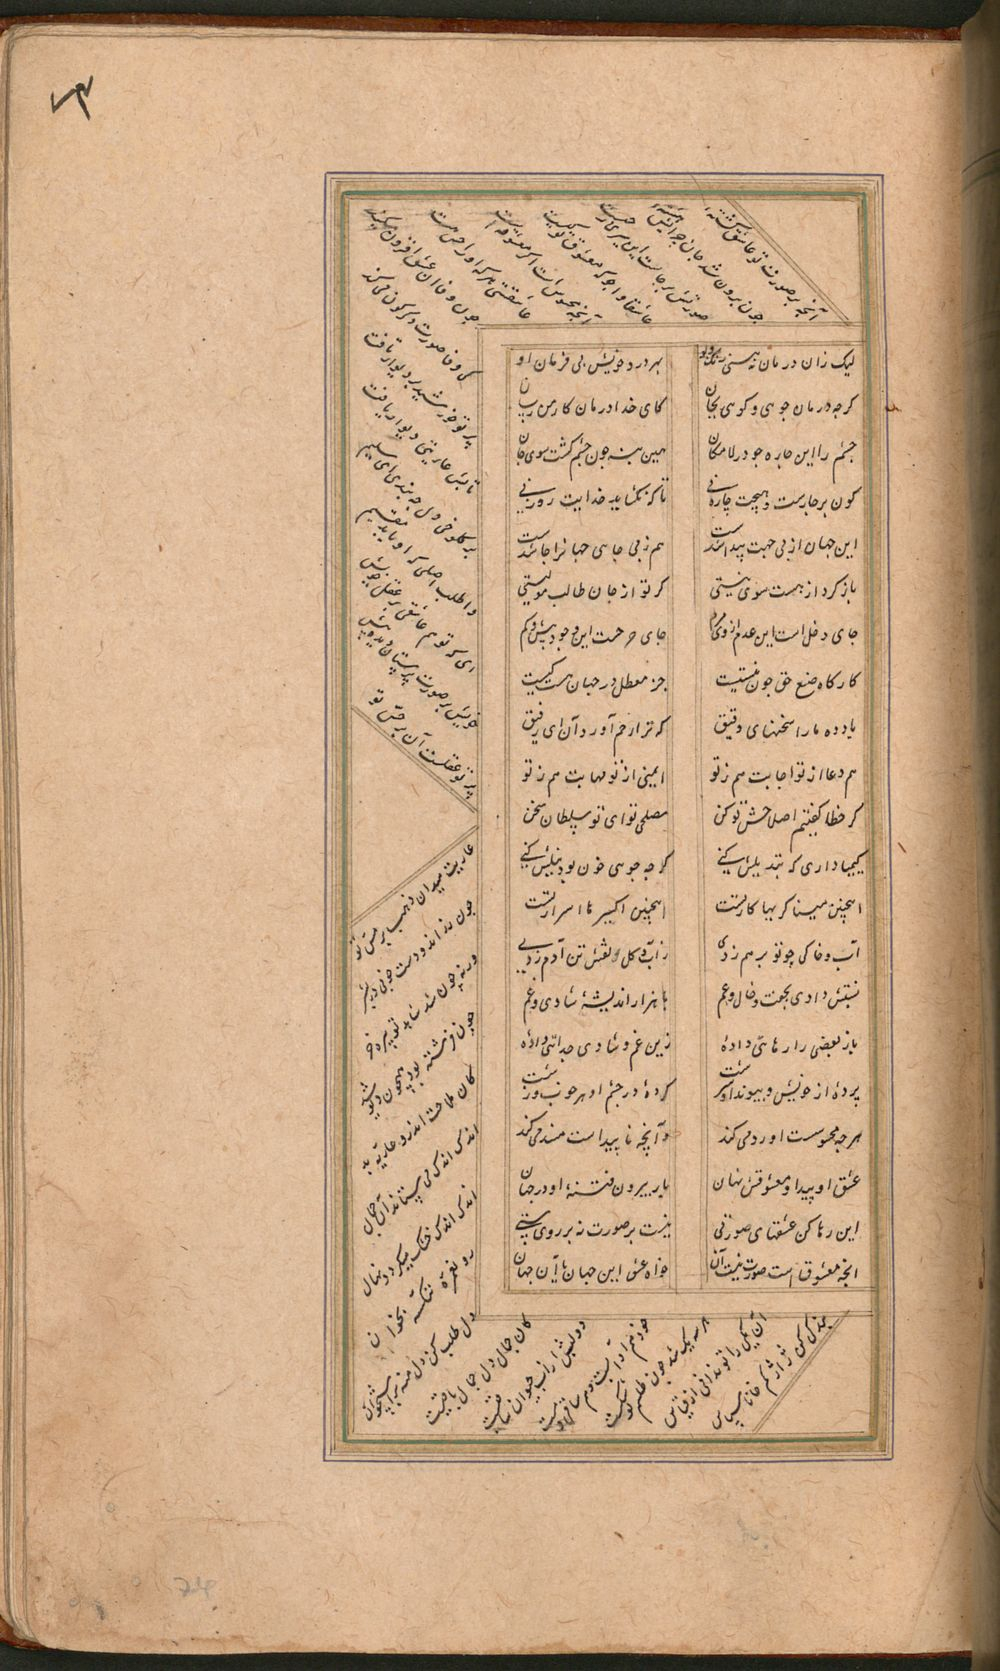 ۷۴
لیک زان درمان نه بینی رنک و بو بهر درد خویش بی فرمان او
کرچه درمان جویی و کویی بجان کای خدا درمان کار من رسان
چشم را این چاره جو در لامکان همین بنه چون چشم کشته سوی جان
کون پر چارست و هیچت چاره نی تا که نکشاید خدایت روزنی
این جهان از بی جهت پیدا شدست هم ز بی جایی جهانرا جا شدست
باز کرد از هست سوی نیستی کر تو از جان طالب مولیستی
جای دخل است این عدم از وی مرم جای خرجست این وجود بیش و کم
کارکاه صنع حق چون نیستیست جز معطل در جهان هست کیست
یاد ده ما را سخنهای دقیق که ترا رحم آورد آن ای رفیق
هم دعا از تو اجابت هم ز تو ایمنی از تو مهابت هم ز تو
کر خطا کفتیم اصلاحش تو کن مصلحی تو ای تو سلطان سخن
کیمیا داری که تبدیلش کنی کرچه جوی خون بود نیلش کنی
اینچنین میناکریها کار تست اینچنین اکسیرها اسرار تست
آب و خاکی چو تو بر هم زدی ز آب و کل نقش تن آدم زدی
نسبتش دادی بجفت و خال و عم با هزار اندیشهٔ شادی و غم
باز بعضی را رهائی دادهٔ زین غم و شادی جدائی دادهٔ
بردهٔ از خویش و پیوند و سرشت کردهٔ در چشم او هر خوب زشت
هر چه محسوست او رد می کند و آنچه ناپیداست مسند می کند
عشق او پیدا و معشوقش نهان یار بیرون فتنهٔ او در جهان
این رها کن عشقهای صورتی نیست بر صورت نه بر روی ستی
انچه معشوق است صورت نیست آن خواه عشق این جهان یا آن جهان
آنچه بر صورت تو عاشق کشتهٔ
چون برون شد جان چرایش هشتهٔ
صورتش برجاست این سیری ز چیست
عاشقا وا جو که معشوق تو کیست
آنچه محسوس است اکر معشوقه است
عاشقستی هر که او را حس هست
چون وفا آن عشق افزون میکند
کی وفا صورت دکرکون می کند
پرتو خورشید بر دیوار تافت
تابش عاریتی دیوار یافت
بر کلوخی دل چه بندی ای سلیم
وا طلب اصلی که او پاید مقیم
ای که تو هم عاشقی بر عقل خویش
خویش بر صورت پرستان دیده بیش
پرتو عقلست آن بر حس تو
عاریت میدان ذهب بر مس تو
چون زر اندودست خوبی در بشر
ورنه چون شد شاهد تو پیره خر
چون فرشته بود همچون دیو شد
کان ملاحت اندرو عاریه بد
اندک اندک می ستاند آن جمال
اندک اندک خشک میکردد نهال
رو نعمره ننکسه بخوان
دل طلب کن دل منه بر استخوان
کان جمال دل جمال باقیست
دولتش از آب حیوان ساقیست
خود هم او آبست و هم ساقی و مست
هر سه یک شد چون طلسم تو شکست
آن یکی را تو ندانی از قیاس
بندکی کن ژاژ کم خا ناسپاس
74